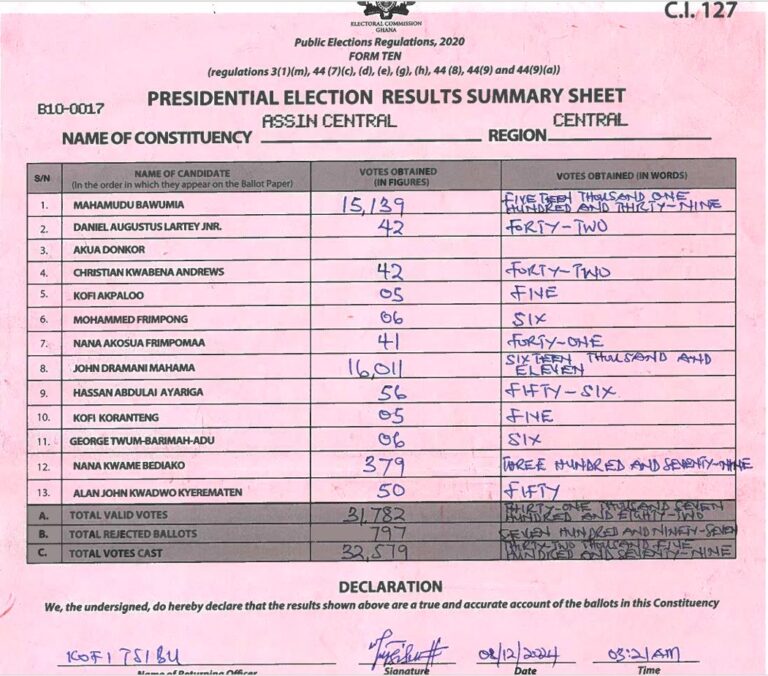 C.I. 127
ELECTORAL COMMISSION
GHANA
Public Elections Regulations, 2020
FORM TEN
(regulations 3(1)(m), 44 (7)(c), (d), (e), (g), (h), 44 (8), 44(9) and 44(9)(a))
B10-0017
PRESIDENTIAL ELECTION RESULTS SUMMARY SHEET
NAME OF CONSTITUENCY ASSIN CENTRAL REGION CENTRAL
S/N NAME OF CANDIDATE (In the order in which they appear on the Ballot Paper) VOTES OBTAINED (IN FIGURES) VOTES OBTAINED (IN WORDS)
1. MAHAMUDU BAWUMIA 15,139 FIVETEEN THOUSAND ONE HUNDRED AND THIRTY-NINE
2. DANIEL AUGUSTUS LARTEY JNR. 42 FORTY-TWO
3. AKUA DONKOR
4. CHRISTIAN KWABENA ANDREWS 42 FORTY-TWO
5. KOFI AKPALOO 05 FIVE
6. MOHAMMED FRIMPONG 06 SIX
7. NANA AKOSUA FRIMPOMAA 41 FORTY-ONE
8. JOHN DRAMANI MAHAMA 16,011 SIXTEEN THOUSAND AND ELEVEN
9. HASSAN ABDULAI AYARIGA 56 FIFTY-SIX
10. KOFI KORANTENG 05 FIVE
11. GEORGE TWUM-BARIMAH-ADU 06 SIX
12. NANA KWAME BEDIAKO 379 THREE HUNDRED AND SEVENTY-NINE
13. ALAN JOHN KWADWO KYEREMATEN 50 FIFTY
A. TOTAL VALID VOTES 31,782 THIRTY-ONE THOUSAND SEVEN HUNDRED AND EIGHTY-TWO
B. TOTAL REJECTED BALLOTS 797 SEVEN HUNDRED AND NINETY-SEVEN
C. TOTAL VOTES CAST 32,579 THIRTY-TWO THOUSAND FIVE HUNDRED AND SEVENTY-NINE
DECLARATION
We, the undersigned, do hereby declare that the results shown above are a true and accurate account of the ballots in this Constituency
KOFI TSIBU 08/12/2024 03:21AM
Name of Returning Officer Signature Date Time